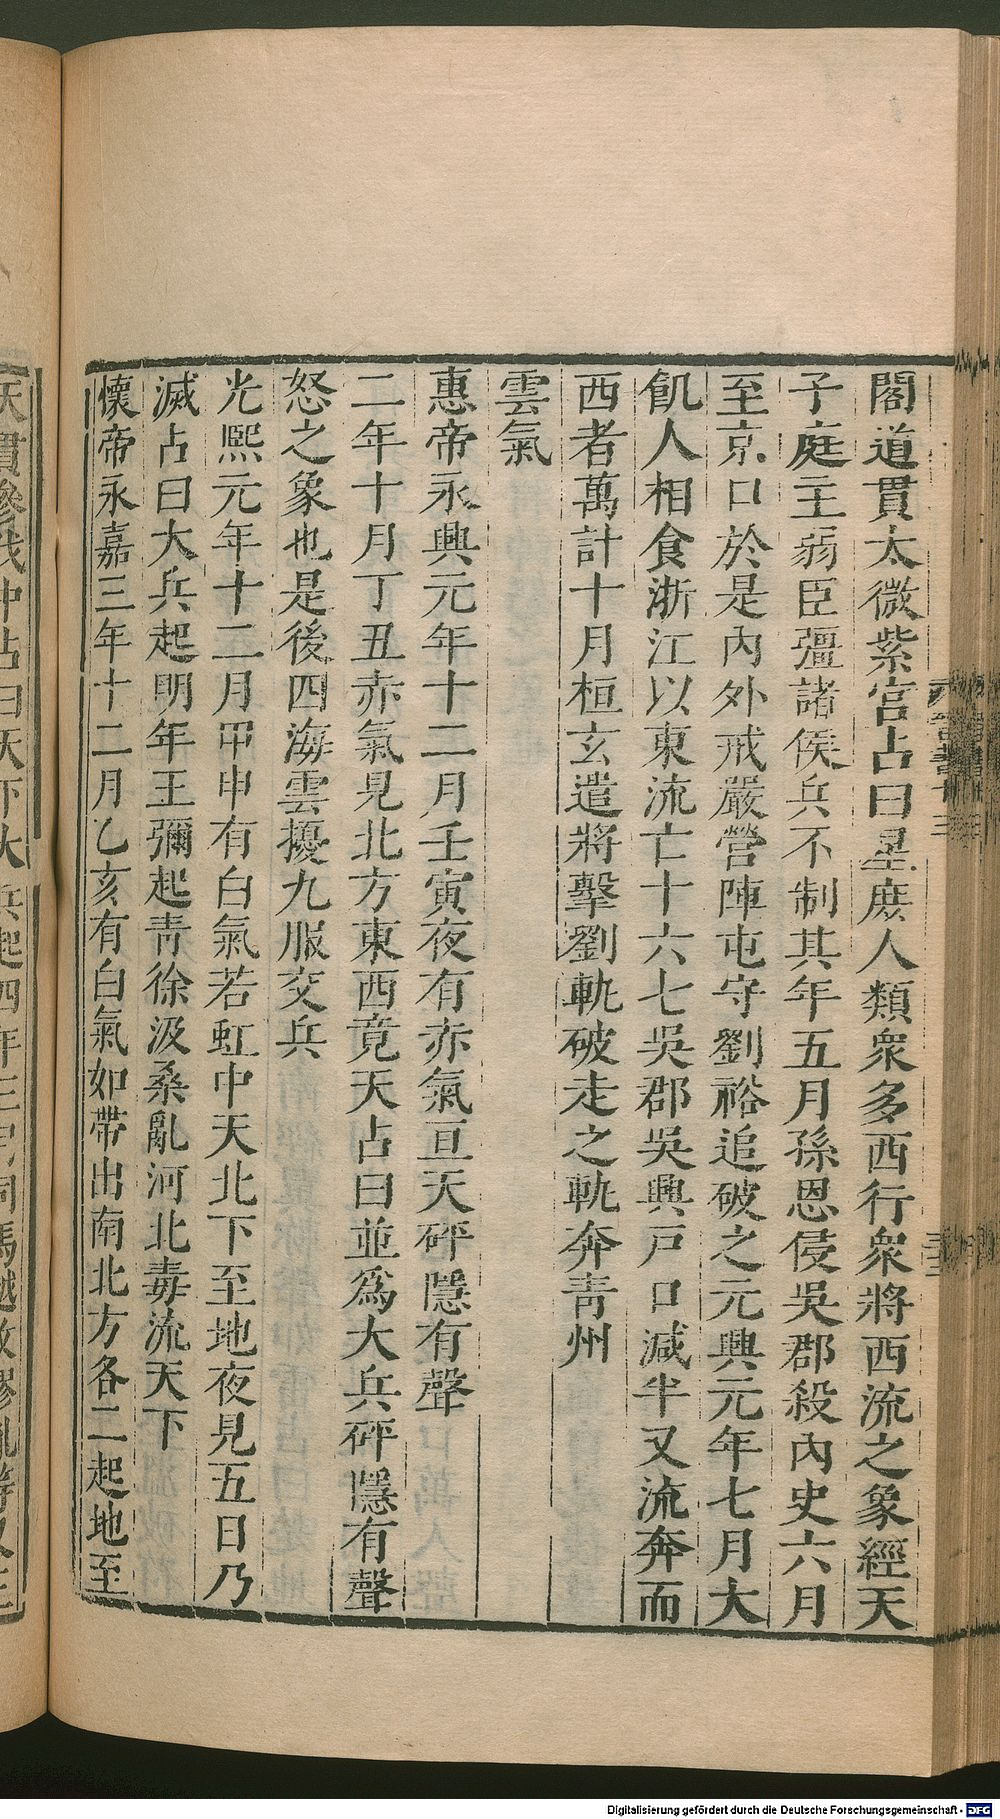 閣道貫太微紫宮占曰星庶人類衆多西行衆將西流之象經天
子庭主弱臣彊諸侯兵不制其年五月孫恩侵吳郡殺內史六月
至京口於是內外戒嚴營陣屯守劉裕追破之元興元年七月大
飢人相食浙江以東流亡十六七吳郡吳興戸口減半又流奔而
西者萬計十月桓玄遣將擊劉軌破走之軌奔青州
雲氣
惠帝永興元年十二月壬寅夜有赤氣亘天砰隱有聲
二年十月丁丑赤氣見北方東西竟天占曰並爲大兵砰隱有聲
怒之象也是後四海雲擾九服交兵
光熙元年十二月甲申有白氣若虹中天北下至地夜見五日乃
滅占曰大兵起明年王彌起青徐汲桑亂河北毒流天下
懷帝永嘉三年十二月乙亥有白氣如帶出南北方各二起地至
天貫參伐中占曰天下大兵起四年三
Digitalisierung gefördert durch die Deutsche Forschungsgemeinschaft - DFG